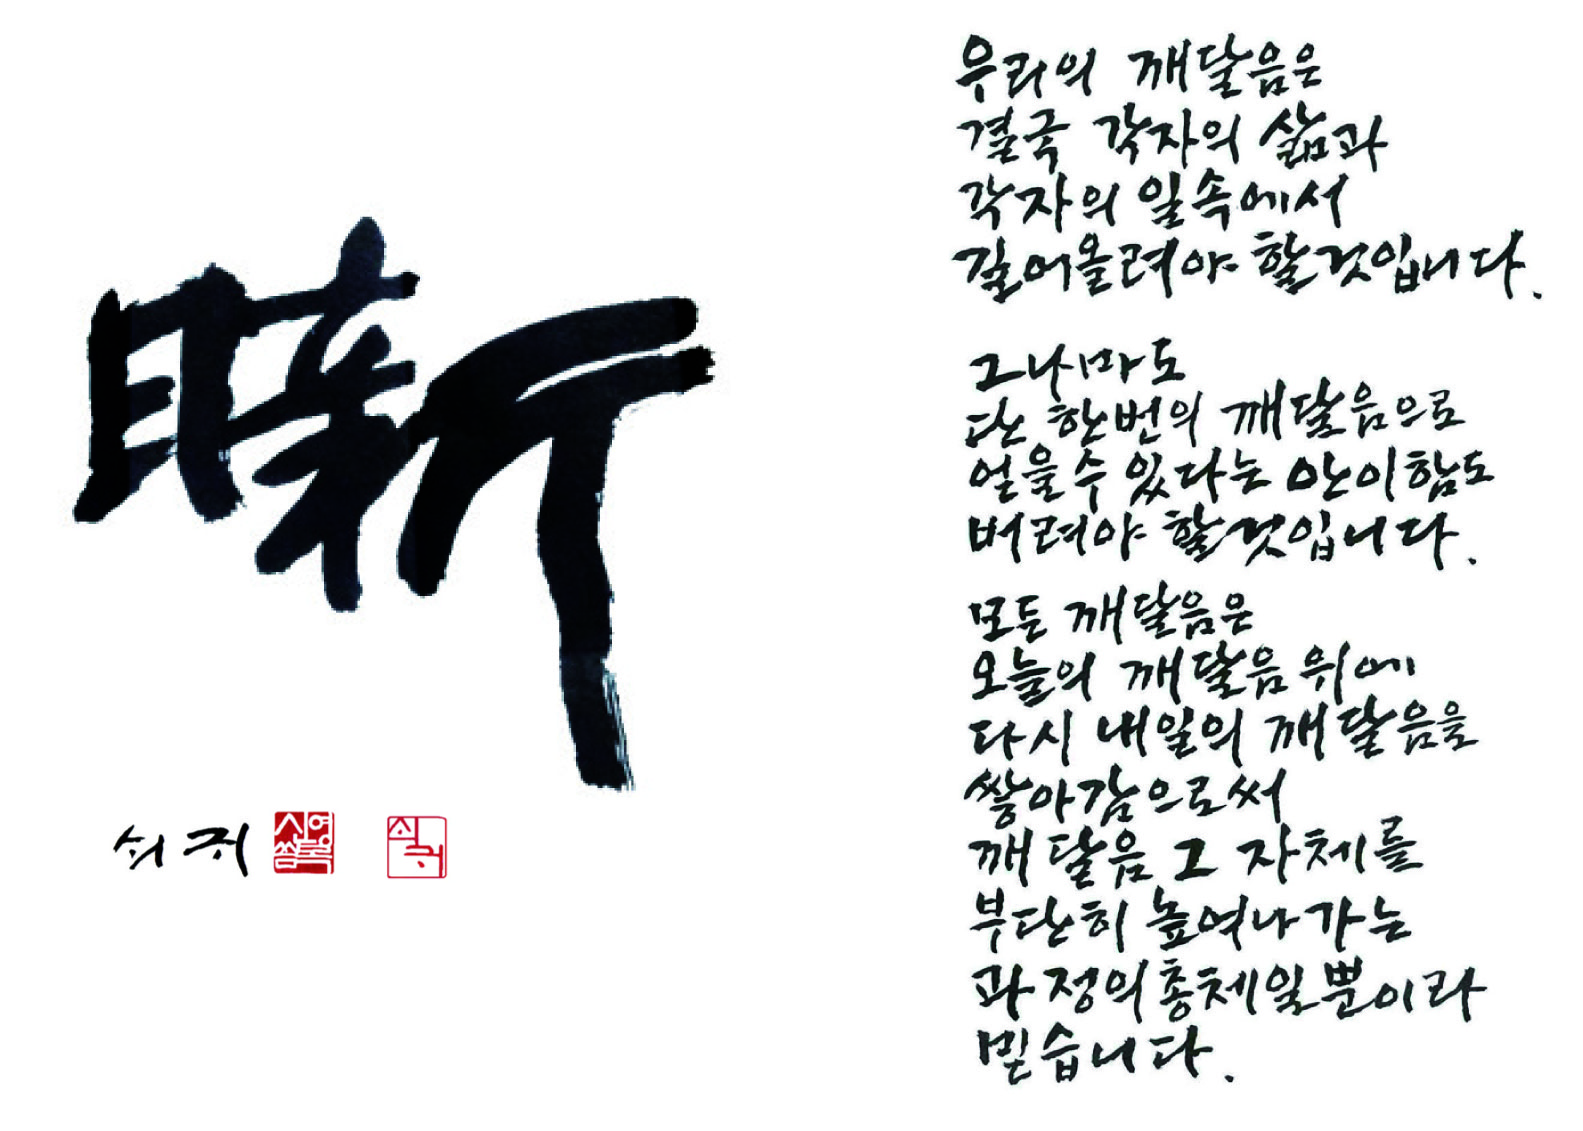 日新
쇠귀
신영복씀
쇠귀
우리의 깨달음은
결국 각자의 삶과
각자의 일속에서
길어올려야 할것입니다.
그나마도
단 한번의 깨달음으로
얻을수 있다는 안이함도
버려야 할것입니다.
모든 깨달음은
오늘의 깨달음 위에
다시 내일의 깨달음을
쌓아감으로써
깨달음 그 자체를
부단히 높여나가는
과정의 총체일뿐이라
믿습니다.